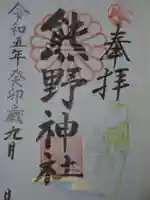 奉拝
熊野神社
令和五年 癸卯歳 九月 日